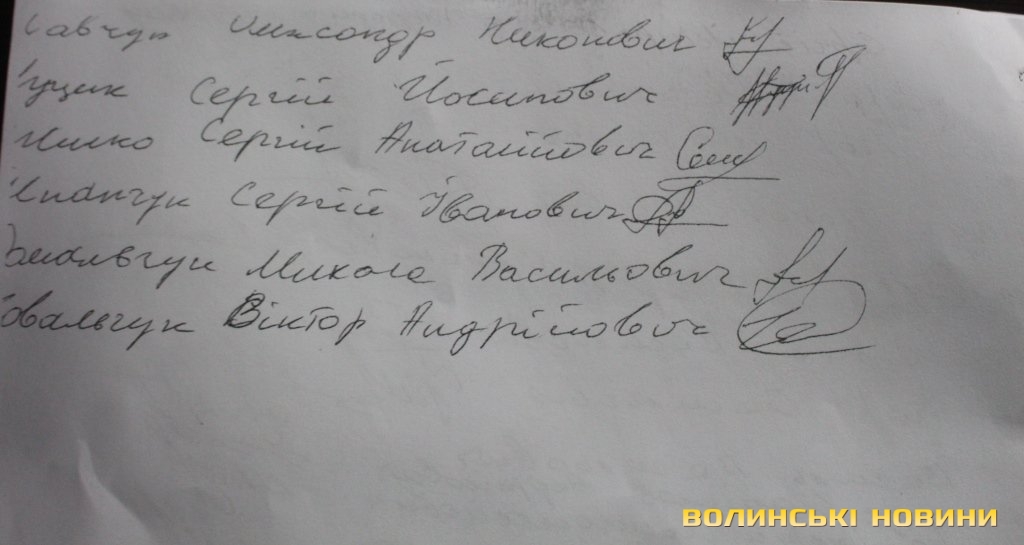 Савчук Олександр Никонович
Сергій Йосипович
Сергій Анатолійович
Сергій Іванович
Микола Васильович
Ковальчук Віктор Андрійович
ВОЛИНСЬКІ НОВИНИ